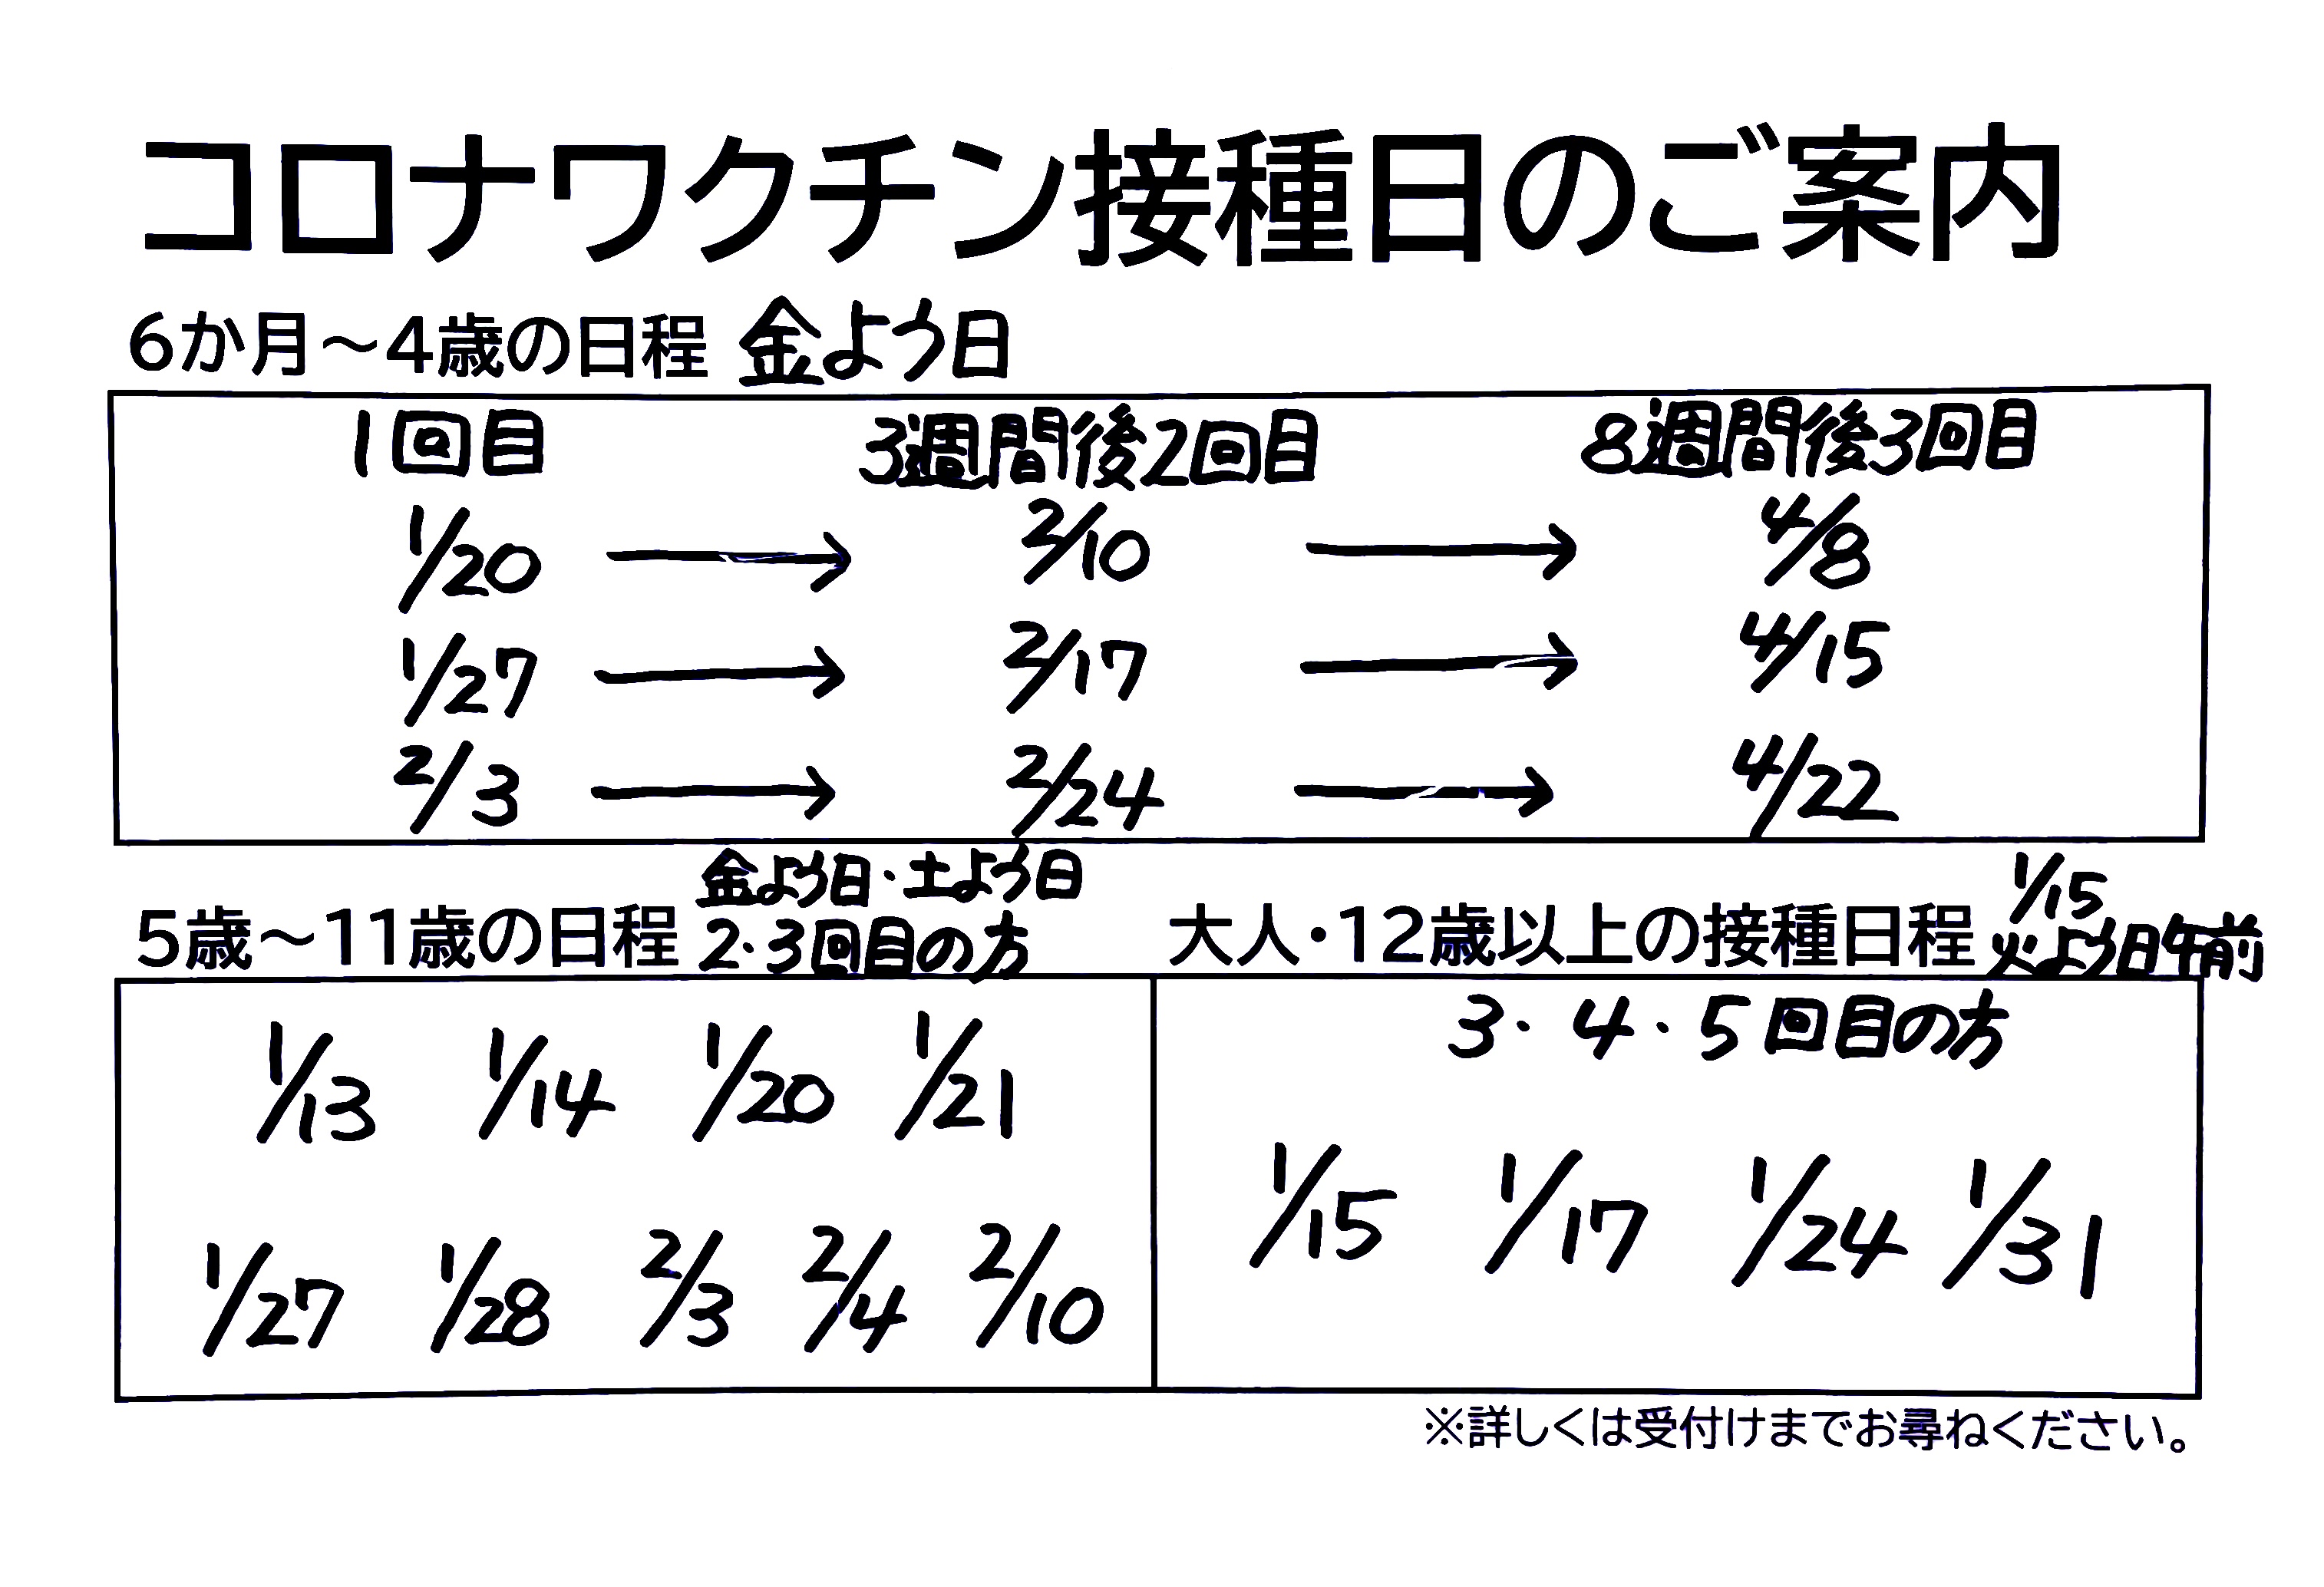 コロナワクチン接種日のご案内
6か月～4歳の日程 金よう日
1回目 3週間後2回目 8週間後3回目
1/20 → 2/10 → 4/8
1/27 → 2/17 → 4/15
2/3 → 2/24 → 4/22
金よう日・土よう日
5歳～11歳の日程 2・3回目の方
1/13 1/14 1/20 1/21
1/27 1/28 2/3 2/4 2/10
1/15
大人・12歳以上の接種日程 火よう日午前
3・4・5回目の方
1/15 1/17 1/24 1/31
※詳しくは受付けまでお尋ねください。